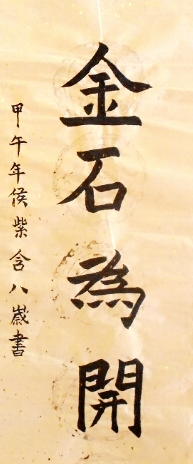 金石為開
甲午年侯紫含八歲書